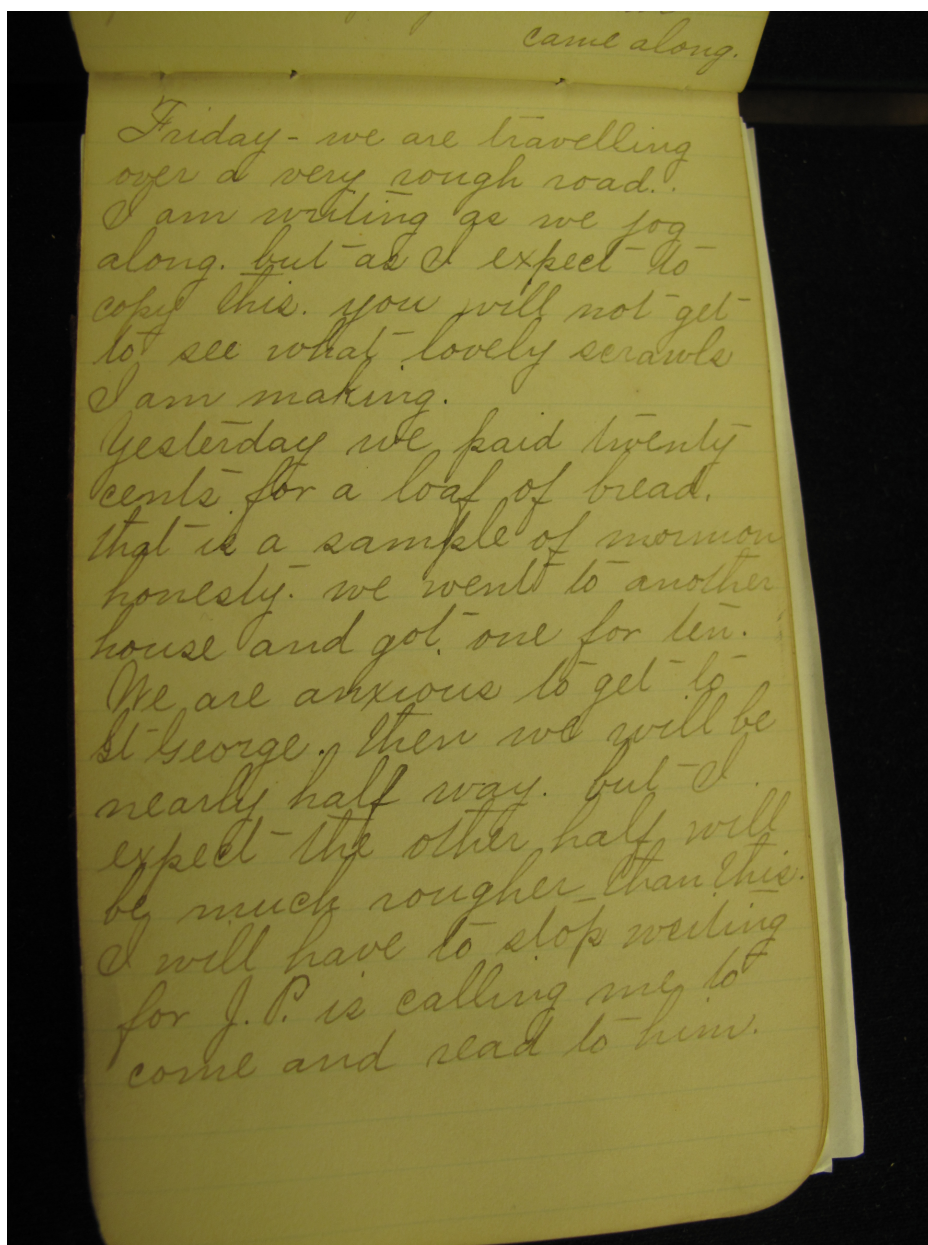 came along.
Friday - we are travelling
over a very rough road.
I am writing as we jog
along. but as I expect to
copy this. you will not get
to see what lovely scrawls
I am making.
Yesterday we paid twenty
cents for a loaf of bread.
that is a sample of mormon
honesty. we went to another
house and got one for ten.
We are anxious to get to
St George. then we will be
nearly half way. but I
expect the other half will
be much rougher than this.
I will have to stop writing
for J. P. is calling me to
come and read to him.